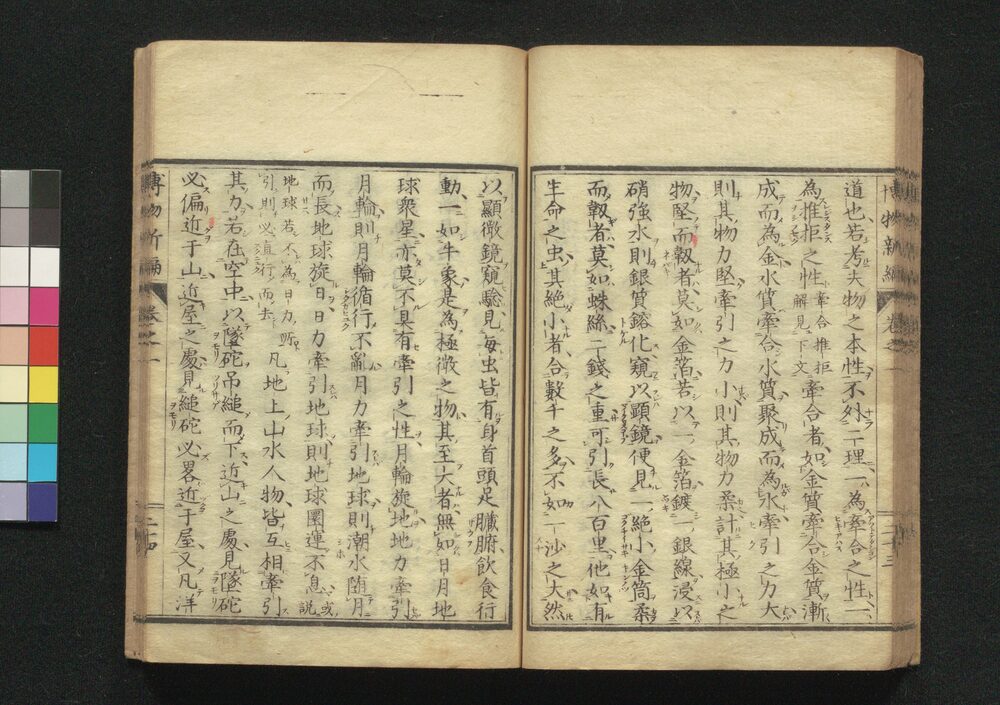 道也若考夫物之本性不外二理一為牽合之性二
為推拒之性牽合推拒解見下文牽合者如金質牽合金質漸
成而為金水質牽合水質聚成而為水牽引之力大
則其物力堅牽引之力小則其物力柔計其極小之
物堅而韌者莫如金箔若以一金箔鍍一銀線浸以
硝強水則銀質鎔化窺以顕鏡便見一絕小金筒柔
而韌者莫如蛛絲二錢之重可引長八百里他如有
生命之虫其絕小者合數千之多不如一沙之大然
以顯微鏡窺驗見每虫皆有身首頭足臟腑飲食行
動一如牛象是為極微之物其至大者無如日月地
球衆星亦莫不具有牽引之性月輪旋地地力牽引
月輪則月輪循行不亂月力牽引地球則潮水随月
而長地球旋日日力牽引地球則地球圜運不息或說
地球若不為日力所引則必直行而去凡地上山水人物皆互相牽引
其力若在空中以墜砣吊縋而下近山之處見墜砣
必偏近于山近屋之處見縋砣必畧近于屋又凡洋
博物新編 卷之一 二十四
博物新編 卷之一 二十三